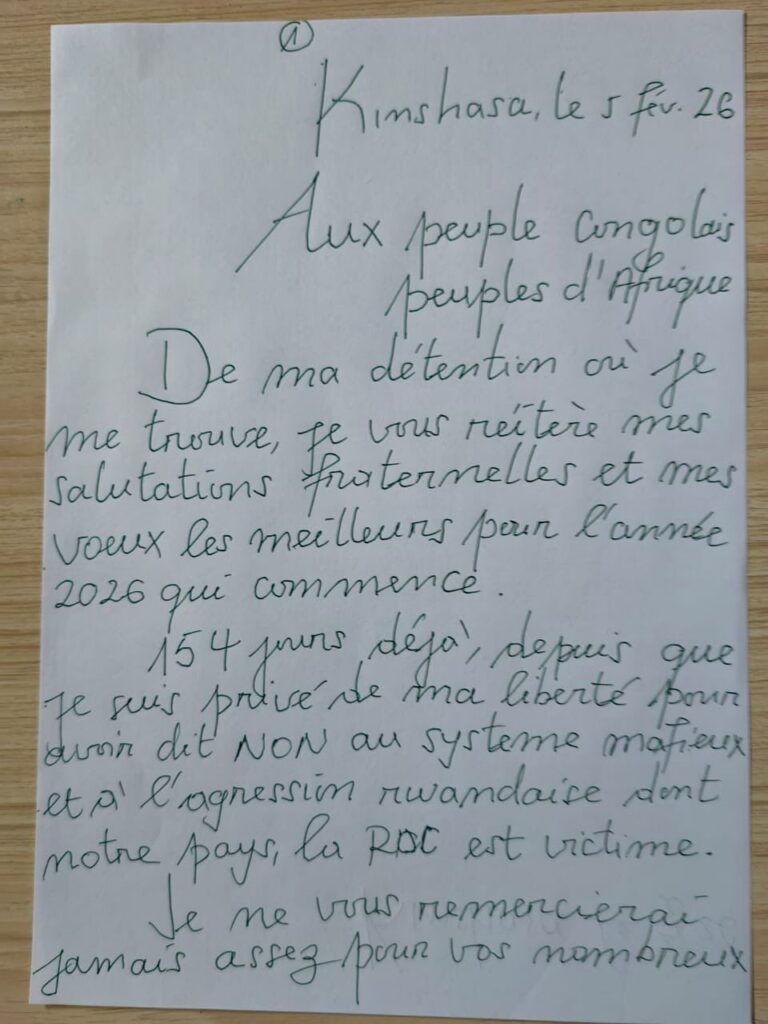 1
Kinshasa, le 5 fév. 26
Aux peuple congolais
peuples d'Afrique
De ma détention où je
me trouve, je vous réitère mes
salutations fraternelles et mes
voeux les meilleurs pour l'année
2026 qui commence.
154 jours déjà, depuis que
je suis privé de ma liberté pour
avoir dit NON au systeme mafieux
et à l'agression rwandaise dont
notre pays, la RDC est victime.
Je ne vous remercierai
jamais assez pour vos nombreux